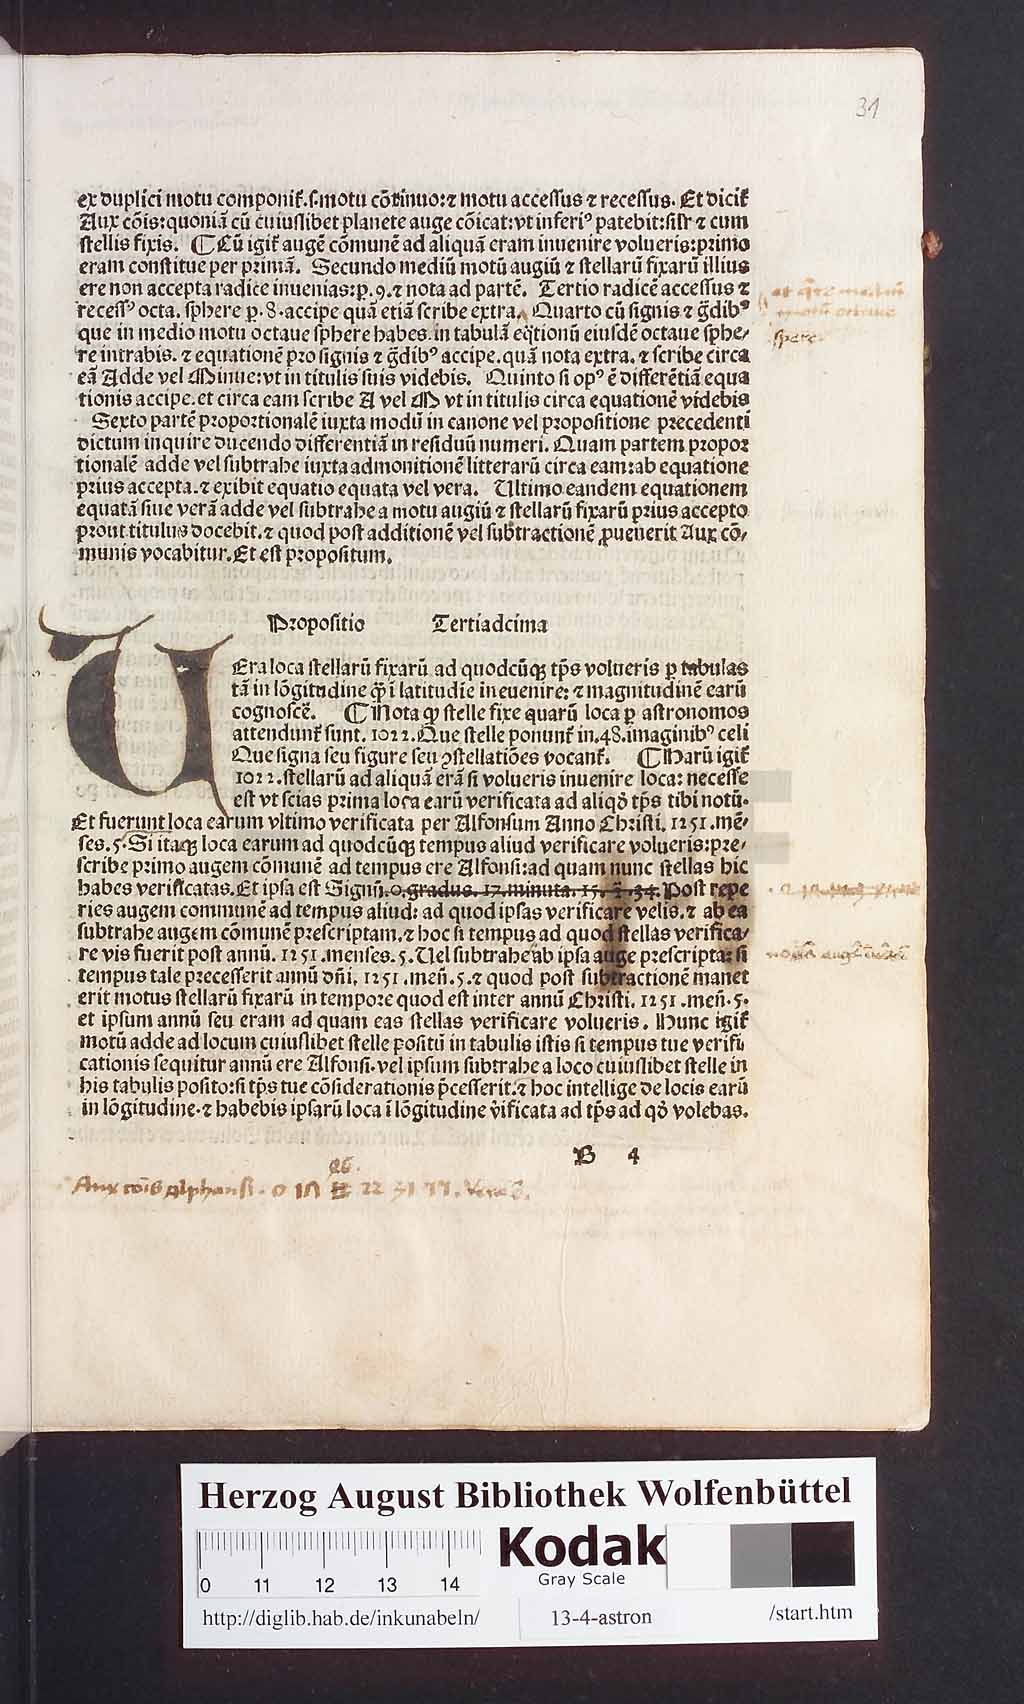 31
ex duplici motu componit᷑.s.motu cōtinuo:⁊ motu accessus ⁊ recessus. Et dicit᷑
Aux cōis:quoniā cū cuiuslibet planete auge cōicat:vt inferiꝰ patebit:silr ⁊ cum
stellis fixis. ¶ Cū igit᷑ augē cōmunē ad aliquā eram inuenire volueris:primo
eram constitue per primā. Secundo mediū motū augiū ⁊ stellarū fixarū illius
ere non accepta radice inuenias:p.9.⁊ nota ad partē. Tertio radicē accessus ⁊
recessꝰ octa. sphere p.8.accipe quā etiā scribe extra. Quarto cū signis ⁊ gr̄dibꝰ
que in medio motu octaue sphere habes.in tabulā eq̄tionū eiusdē octaue sphe-
re intrabis.⁊ equationē pro signis ⁊ gr̄dibꝰ accipe.quā nota extra.⁊ scribe circa
eā Adde vel Minue:vt in titulis suis videbis. Quinto si opꝰ ē differētiā equa
tionis accipe.et circa eam scribe A vel M vt in titulis circa equationē videbis
Sexto partē proportionalē iuxta modū in canone vel propositione precedenti
dictum inquire ducendo differentiā in residuū numeri. Quam partem propor
tionalē adde vel subtrahe iuxta admonitionē litterarū circa eam:ab equatione
prius accepta.⁊ exibit equatio equata vel vera. Ultimo eandem equationem
equatā siue verā adde vel subtrahe a motu augiū ⁊ stellarū fixarū prius accepto
prout titulus docebit.⁊ quod post additionē vel subtractionē ꝓuenerit Aux cō-
munis vocabitur.Et est propositum.
Propositio Tertiadcima
UEra loca stellarū fixarū ad quodcūqꝫ tp̄s volueris ꝑ tabulas
tā in lōgitudine q̄ȝ ī latitudīe ineuenire:⁊ magnitudinē earū
cognoscē. ¶ Nota ꝙ stelle fixe quarū loca ꝑ astronomos
attendunt᷑ sunt.1022.Que stelle ponunt᷑ in.48.imaginibꝰ celi
Que signa seu figure seu ꝯstellatiōes vocant᷑. ¶ Harū igit᷑
1022.stellarū ad aliquā erā si volueris inuenire loca: necesse
est vt scias prima loca earū verificata ad aliqđ tp̄s tibi notū.
Et fuerunt loca earum vltimo verificata per Alfonsum Anno Christi.1251.mē-
ses.5.Si itaqꝫ loca earum ad quodcūqꝫ tempus aliud verificare volueris:pre-
scribe primo augem cōmunē ad tempus ere Alfonsi:ad quam nunc stellas hic
habes verificatas.Et ipsa est Signū.0.gradus.17.minuta.15.2.34.Post repe
ries augem communē ad tempus aliud: ad quod ipsas verificare velis.⁊ ab ea
subtrahe augem cōmunē prescriptam.⁊ hoc si tempus ad quod stellas verifica-
re vis fuerit post annū.1251.menses.5.Uel subtrahe ab ipsa auge prescripta: si
tempus tale precesserit annū dn̄i.1251.men̄.5.⁊ quod post subtractionē manet
erit motus stellarū fixarū in tempore quod est inter annū Christi.1251.men̄.5.
et ipsum annū seu eram ad quam eas stellas verificare volueris. Hunc igit᷑
motū adde ad locum cuiuslibet stelle positū in tabulis istis si tempus tue verifi
cationis sequitur annū ere Alfonsi.vel ipsum subtrahe a loco cuiuslibet stelle in
his tabulis posito:si tp̄s tue cōsiderationis p̄cesserit.⁊ hoc intellige de locis earū
in lōgitudine.⁊ habebis ipsarū loca ī lōgitudine v̄ificata ad tp̄s ad qđ volebas.
B 4
spere
Aux cōis alphonsi. 0 17
Herzog August Bibliothek Wolfenbüttel
0 11 12 13 14
Kodak
Gray Scale
http://diglib.hab.de/inkunabeln/ 13-4-astron /start.htm